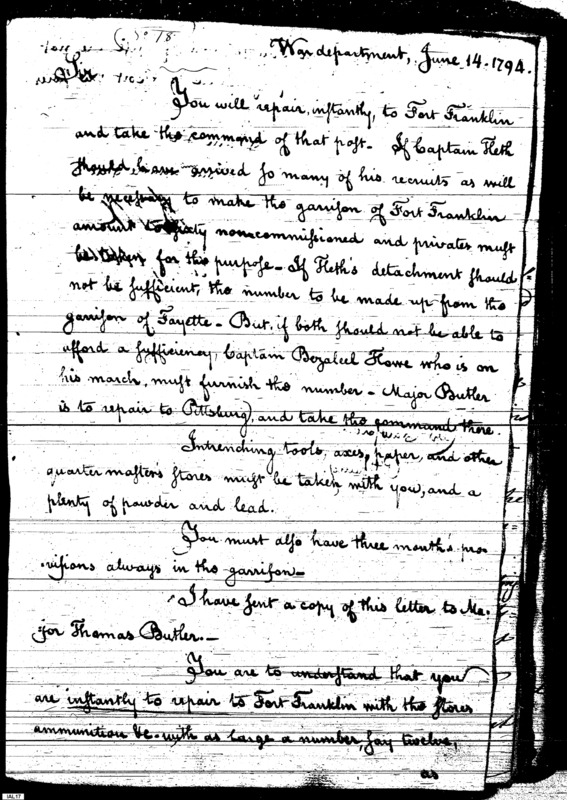 War department, June 14. 1794.
Sir
You will repair, instantly, to Fort Franklin
and take the command of that post. If Captain Heth
should have arrived so many of his recruits as will
be necessary to make the garrison of Fort Franklin
amount to sixty noncommissioned and privates must
be taken for this purpose. If Heth's detachment should
not be sufficient, the number to be made up from the
garrison of Fayette. But, if both should not be able to
afford a sufficiency, Captain Bezaleel Howe who is on
his march, must furnish the number. Major Butler
is to repair to Pittsburg, and take the command there.
Intrenching tools, axes, paper, and other
quarter master's stores must be taken with you, and a
plenty of powder and lead.
You must also have three month's pro-
visions always in the garrison.
I have sent a copy of this letter to Ma-
jor Thomas Butler.
You are to understand that you
are instantly to repair to Fort Franklin with the stores
ammunition &c. with as large a number, say twelve,
as
IAL17